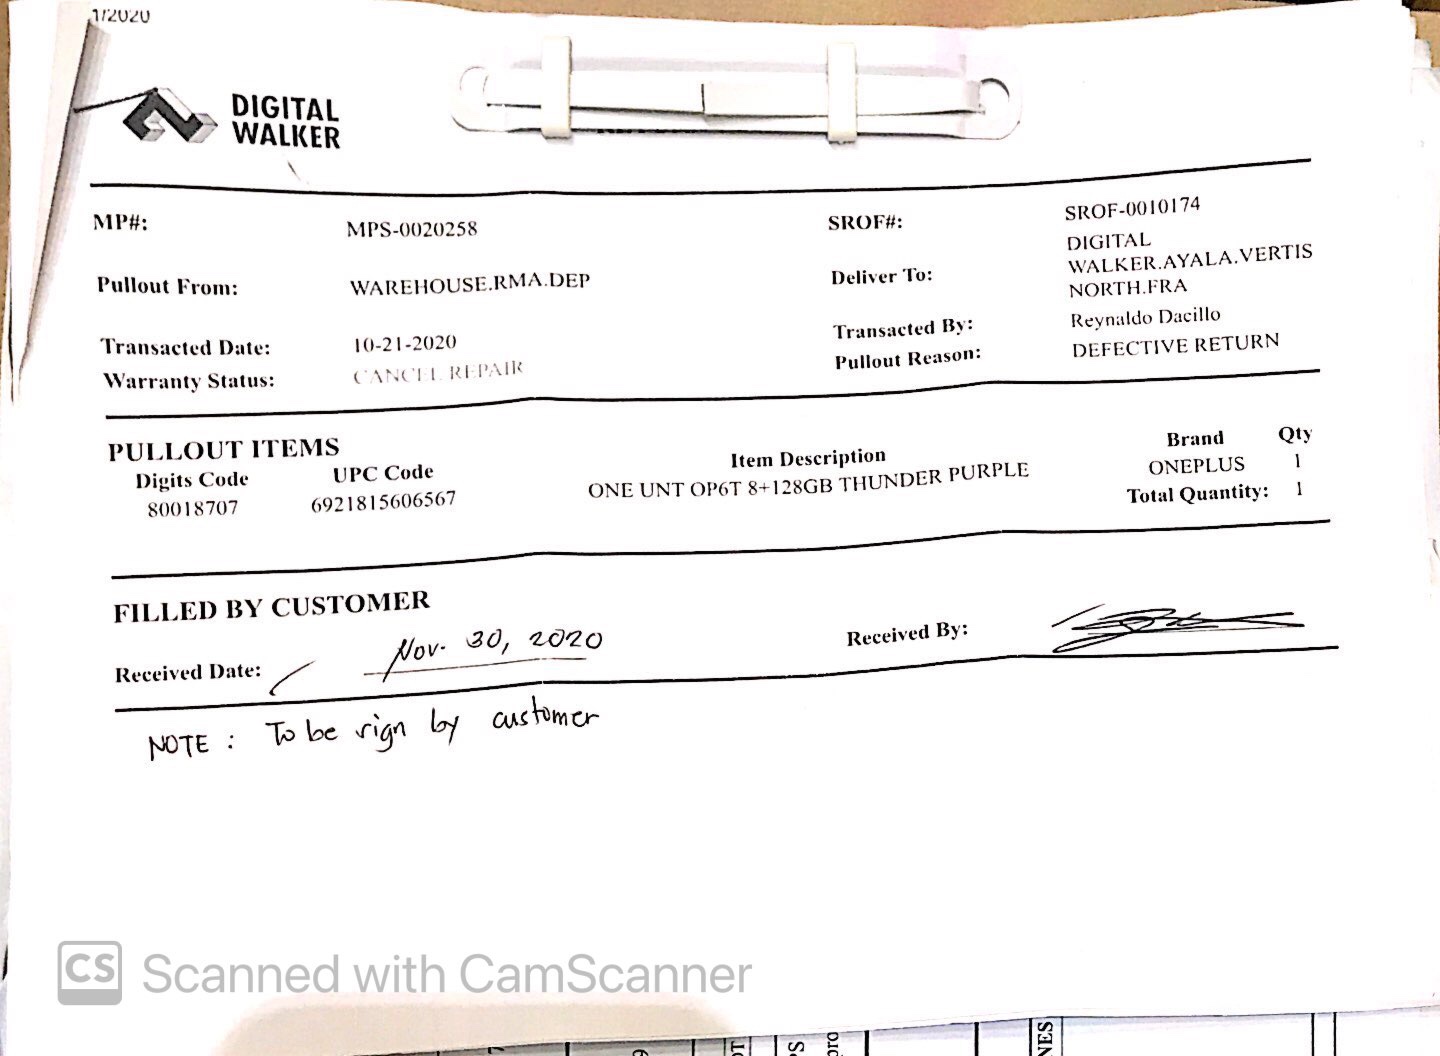 1/2020
DIGITAL
WALKER
MP#: MPS-0020258 SROF#: SROF-0010174
Pullout From: WAREHOUSE.RMA.DEP Deliver To: DIGITAL
WALKER.AYALA.VERTIS
NORTH.FRA
Transacted Date: 10-21-2020 Transacted By: Reynaldo Dacillo
Warranty Status: CANCEL REPAIR Pullout Reason: DEFECTIVE RETURN
PULLOUT ITEMS
Digits Code UPC Code Item Description Brand Qty
80018707 6921815606567 ONE UNT OP6T 8+128GB THUNDER PURPLE ONEPLUS 1
Total Quantity: 1
FILLED BY CUSTOMER
Received Date: Nov. 30, 2020 Received By:
NOTE : To be sign by customer
CS Scanned with CamScanner
NES